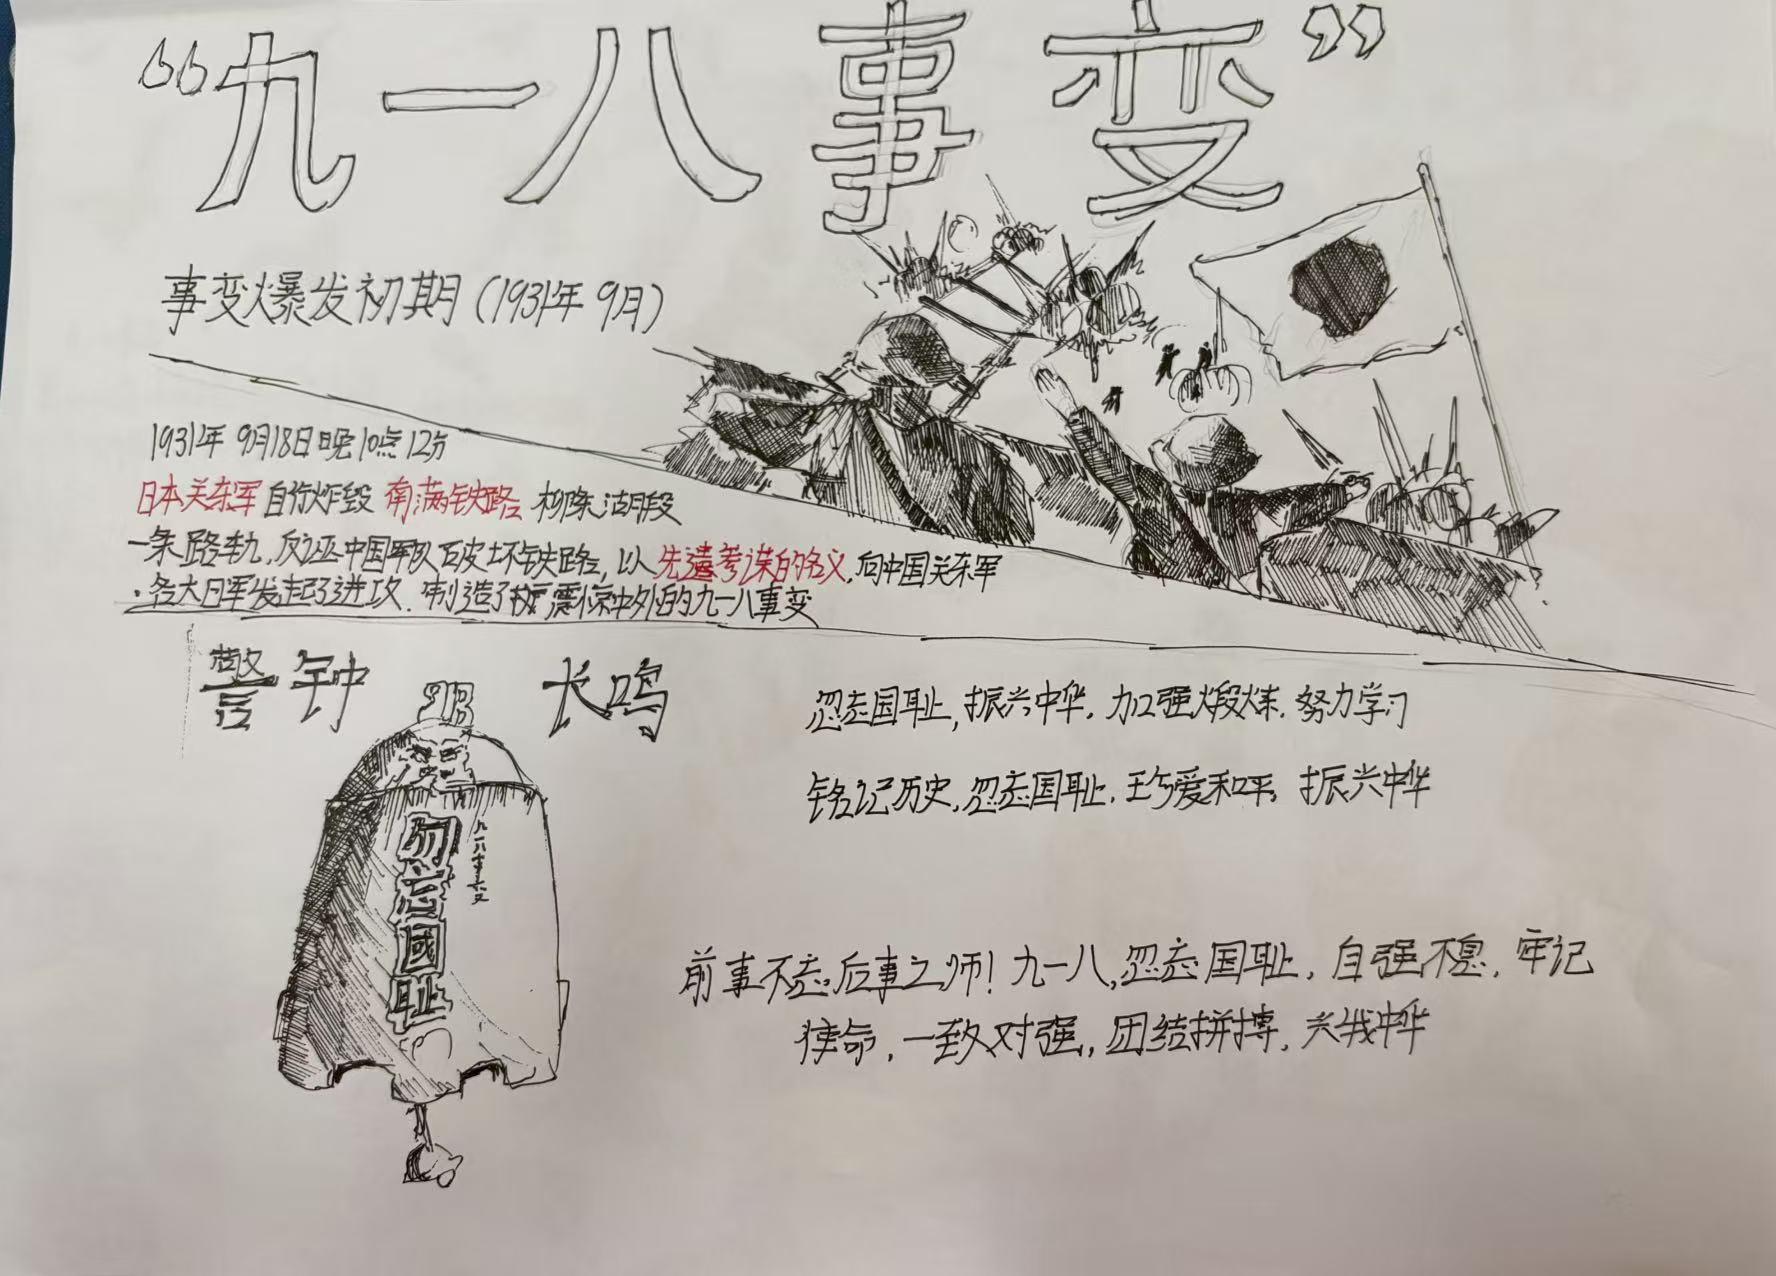 “九一八事变”
事变爆发初期（1931年9月）
1931年9月18日晚10点12分
日本关东军自行炸毁南满铁路柳条湖段
一条路轨，反诬中国军队破坏铁路，以先遣参谋的名义，向中国关东军
各大日军发起了进攻．制造了振震惊中外的九一八事变
警钟 长鸣
勿忘國耻
忽忘国耻，振兴中华．加强煅炼．努力学习
铭记历史，忽忘国耻．珍爱和平，振兴中华
前事不忘，后事之师！九一八，忽忘国耻，自强不息，牢记
使命，一致对强，团结拼搏，兴我中华